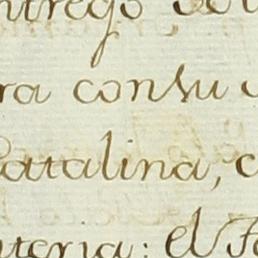 ntrego
ra consu
Catalina, c
nteria: el Fa